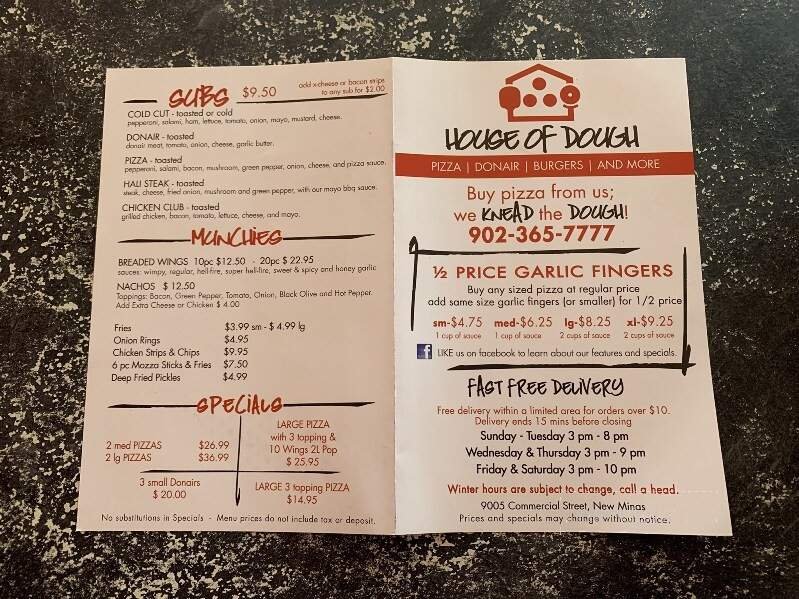 SUBS $9.50
add x-cheese or bacon strips
to any sub for $2.00
COLD CUT - toasted or cold
pepperoni, salami, ham, lettuce, tomato, onion, mayo, mustard, cheese.
DONAIR - toasted
donair meat, tomato, onion, cheese, garlic butter.
PIZZA - toasted
pepperoni, salami, bacon, mushroom, green pepper, onion, cheese, and pizza sauce.
HALI STEAK - toasted
steak, cheese, fried onion, mushroom and green pepper, with our mayo bbq sauce.
CHICKEN CLUB - toasted
grilled chicken, bacon, tomato, lettuce, cheese, and mayo.
MUNCHIES
BREADED WINGS 10pc $12.50 - 20pc $ 22.95
sauces: wimpy, regular, hell-fire, super hell-fire, sweet & spicy and honey garlic
NACHOS $ 12.50
Toppings: Bacon, Green Pepper, Tomato, Onion, Black Olive and Hot Pepper.
Add Extra Cheese or Chicken $ 4.00
Fries $3.99 sm - $ 4.99 lg
Onion Rings $4.95
Chicken Strips & Chips $9.95
6 pc Mozza Sticks & Fries $7.50
Deep Fried Pickles $4.99
SPECIALS
2 med PIZZAS $26.99
2 lg PIZZAS $36.99
LARGE PIZZA
with 3 topping &
10 Wings 2L Pop
$ 25.95
3 small Donairs
$ 20.00
LARGE 3 topping PIZZA
$14.95
No substitutions in Specials - Menu prices do not include tax or deposit.
HOUSE OF DOUGH
PIZZA | DONAIR | BURGERS | AND MORE
Buy pizza from us;
we KNEAD the DOUGH!
902-365-7777
½ PRICE GARLIC FINGERS
Buy any sized pizza at regular price
add same size garlic fingers (or smaller) for 1/2 price
sm-$4.75 med-$6.25 lg-$8.25 xl-$9.25
1 cup of sauce 1 cup of sauce 2 cups of sauce 2 cups of sauce
f LIKE us on facebook to learn about our features and specials.
FAST FREE DELIVERY
Free delivery within a limited area for orders over $10.
Delivery ends 15 mins before closing
Sunday - Tuesday 3 pm - 8 pm
Wednesday & Thursday 3 pm - 9 pm
Friday & Saturday 3 pm - 10 pm
Winter hours are subject to change, call a head.
9005 Commercial Street, New Minas
Prices and specials may change without notice.